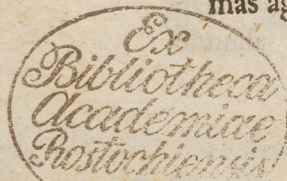 mas ag
Ex
Bibliotheca
Academiae
Rostochiensis